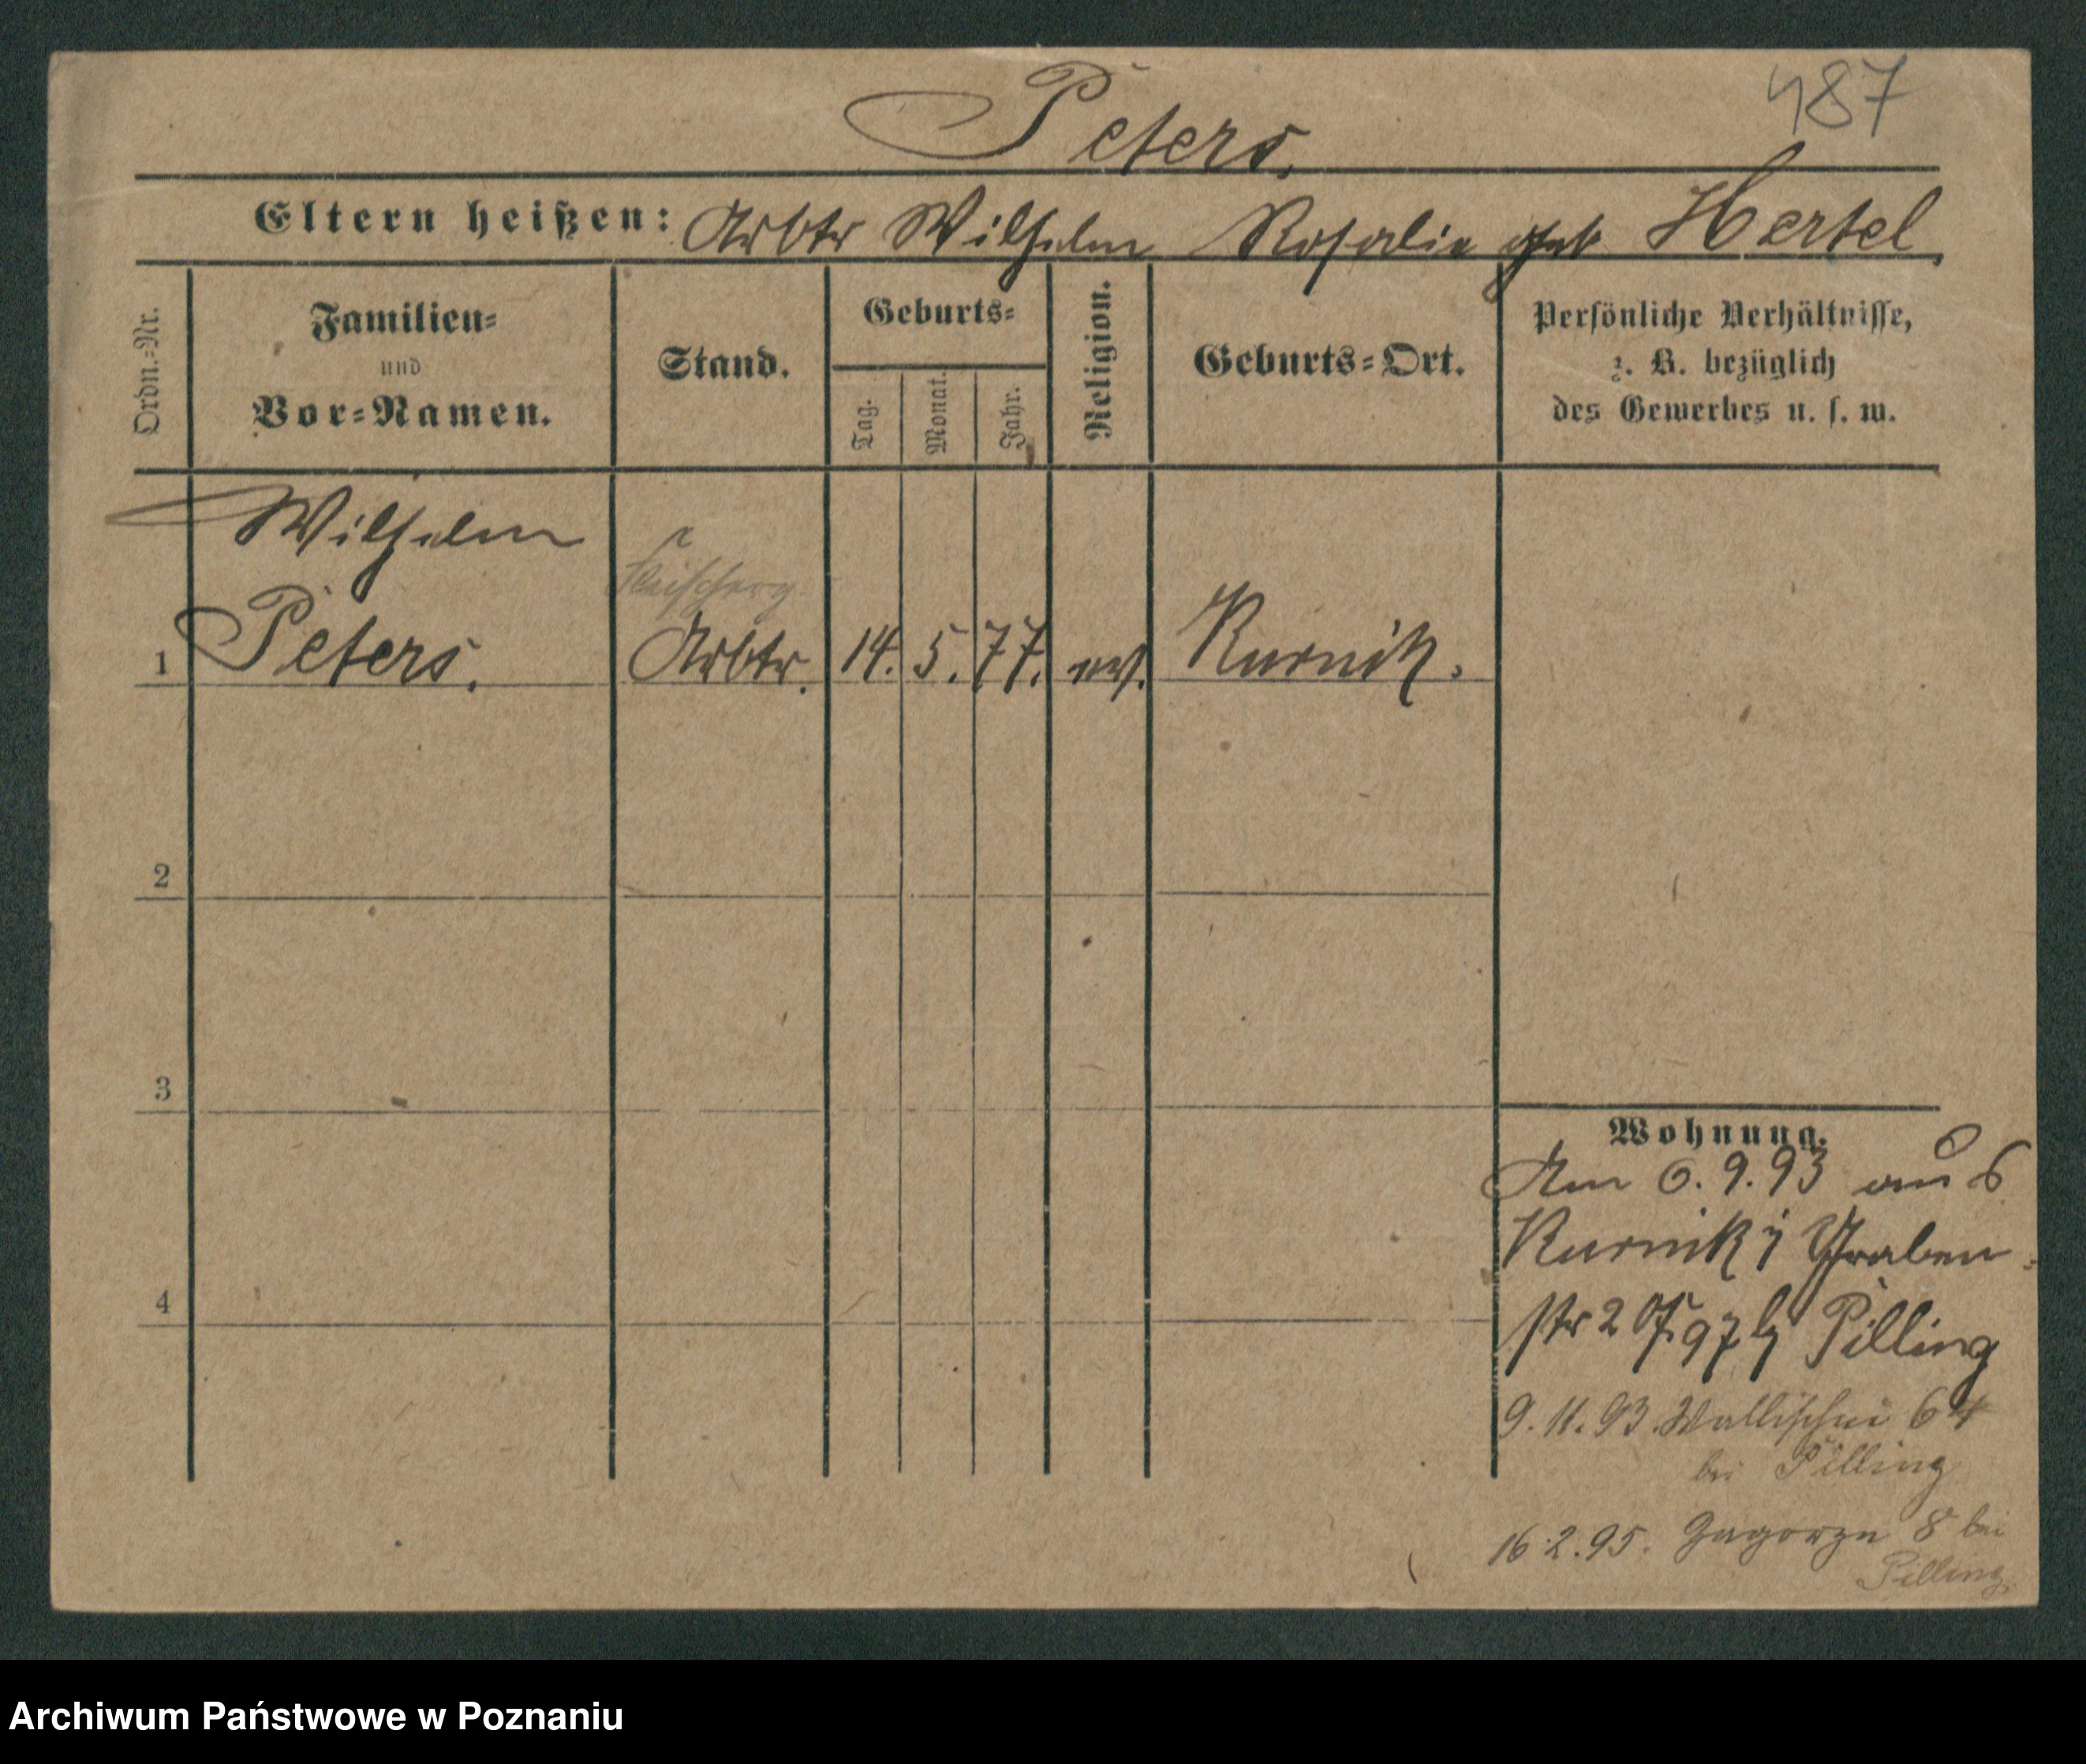 487
Peters.
Eltern heißen: Arbtr Wilhelm Rosalie geb Hertel
Ordn.=Nr.
Familien=
und
Vor=Namen.
Stand.
Geburts=
Tag.
Monat.
Jahr.
Religion.
Geburts=Ort.
Persönliche Verhältnisse,
z. B. bezüglich
des Gewerbes u. s. w.
Wilhelm
1 Peters. Arbtr. 14. 5. 77. Kurnik.
2
3
4
Wohnung.
Am 6.9.93 aus
Kurnik Graben=
str 2 Pilling
9.11.93. Wallischei 64
bei Pilling
16.2.95. Zagorze 8 bei
Pilling
Archiwum Państwowe w Poznaniu